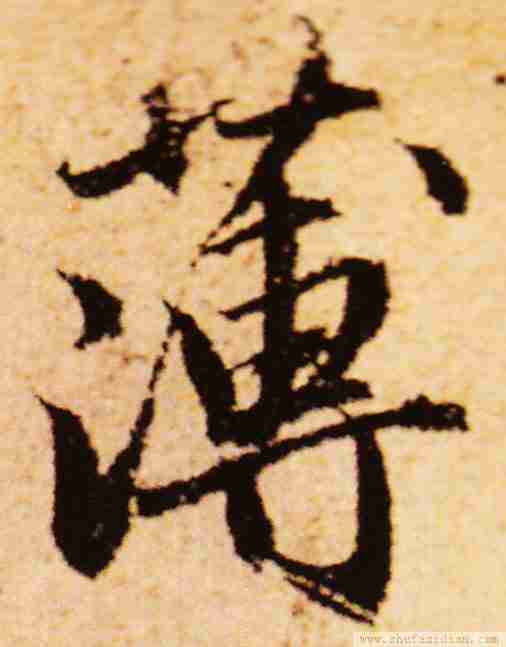 薄
www.shufazidian.com